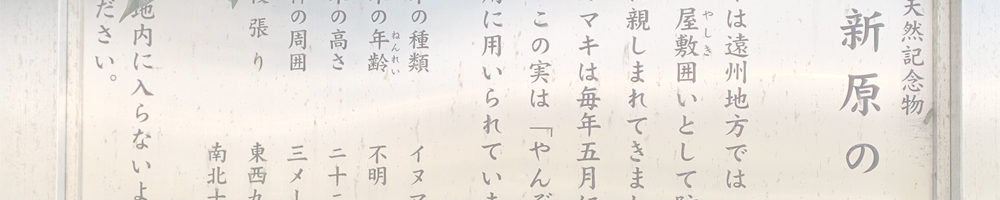 天然記念物
新原の
は遠州地方では
屋敷囲いとして
親しまれてきまし
マキは毎年五月に
この実は「やんぞ
用に用いられていま
の種類 イヌマ
の年齢 不明
の高さ 二十二
の周囲 三メー
枝張り 東西九
南北十
地内に入らないよ
ださい。